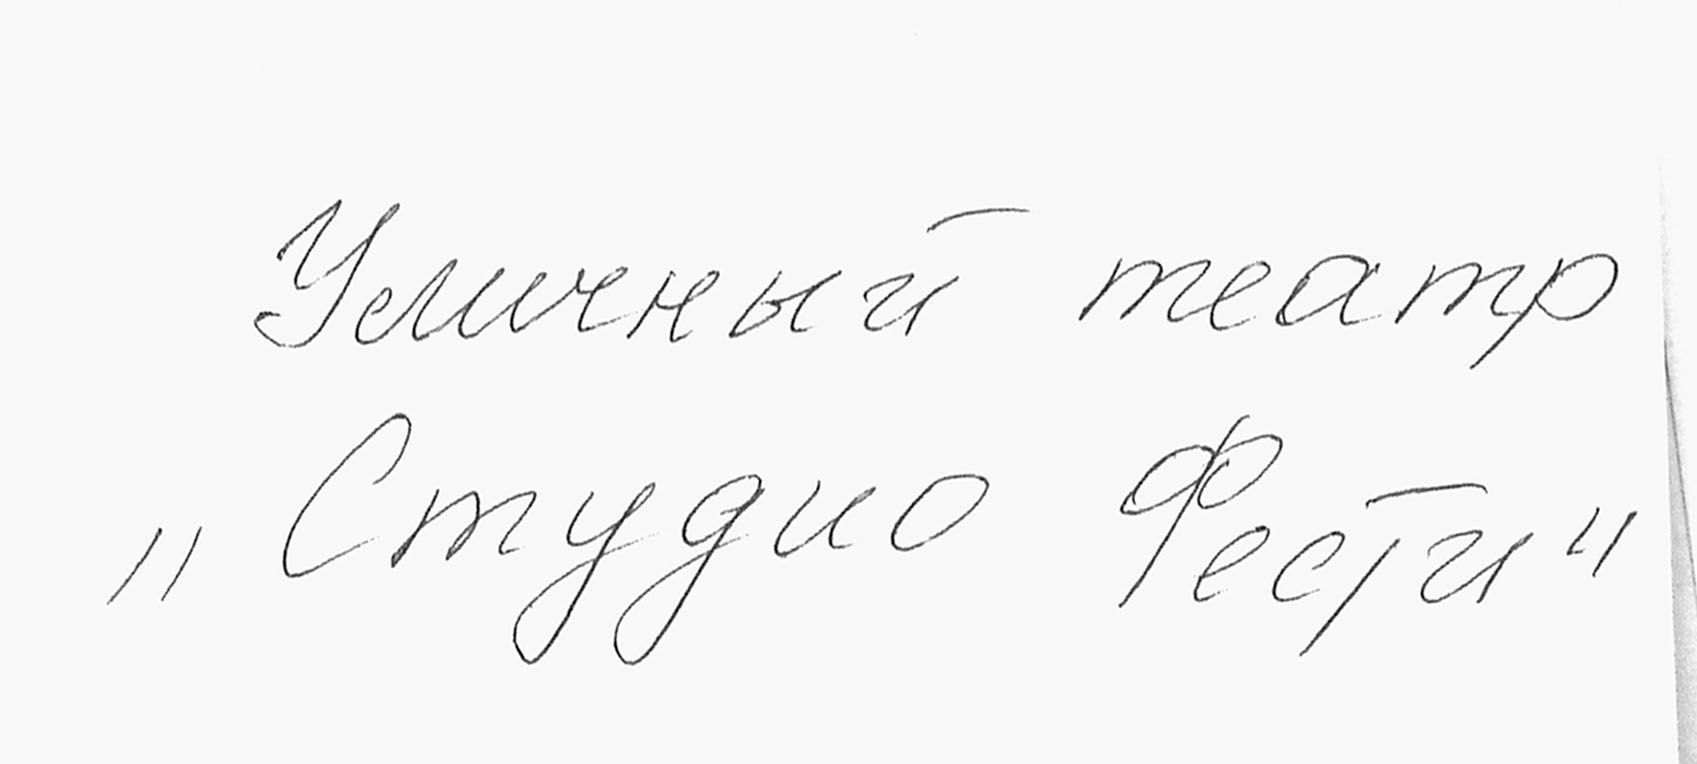 Уличный театр
„Студио Фести“